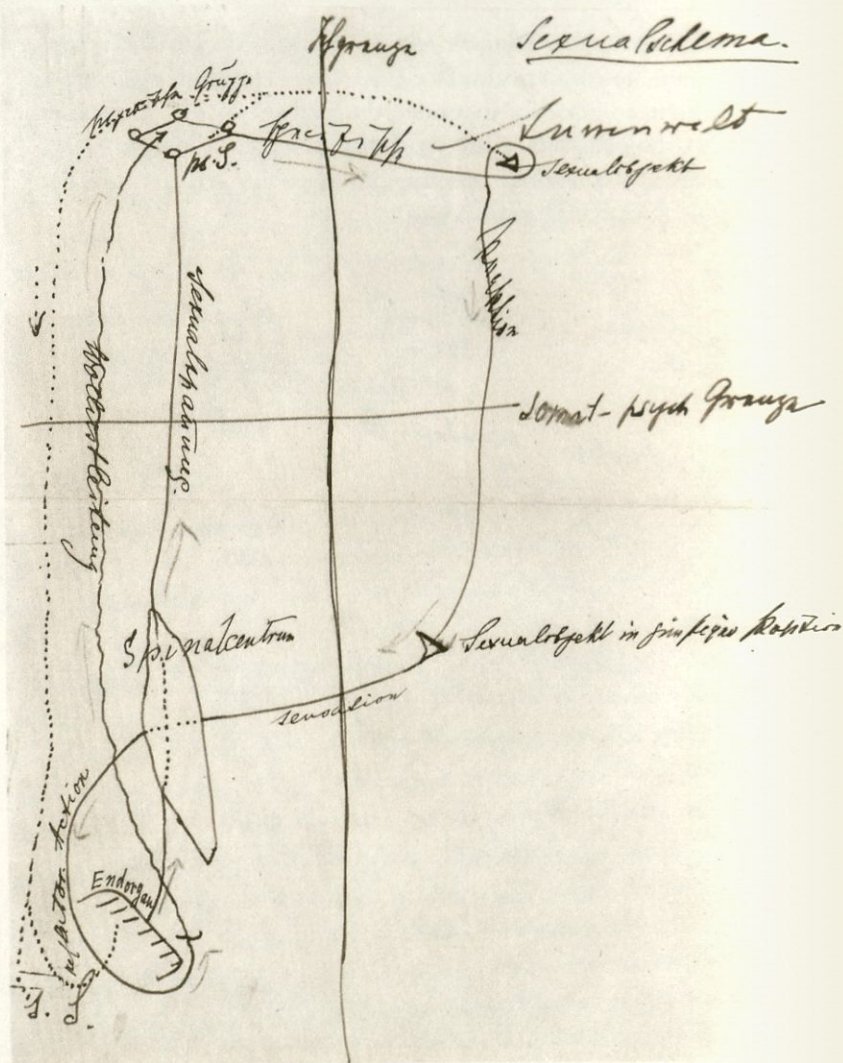 Sexualschema.
Ichgrenze
psychische Grupp.
ps. S.
Spezif.
Aussenwelt
Sexualobjekt
Reaktion
Sexualspannung.
Wollustleitung
Somat-psych Grenze
Spinalcentrum
Sexualobjekt in günstiger Position
sensation
reflector Action
Endorgan
S.